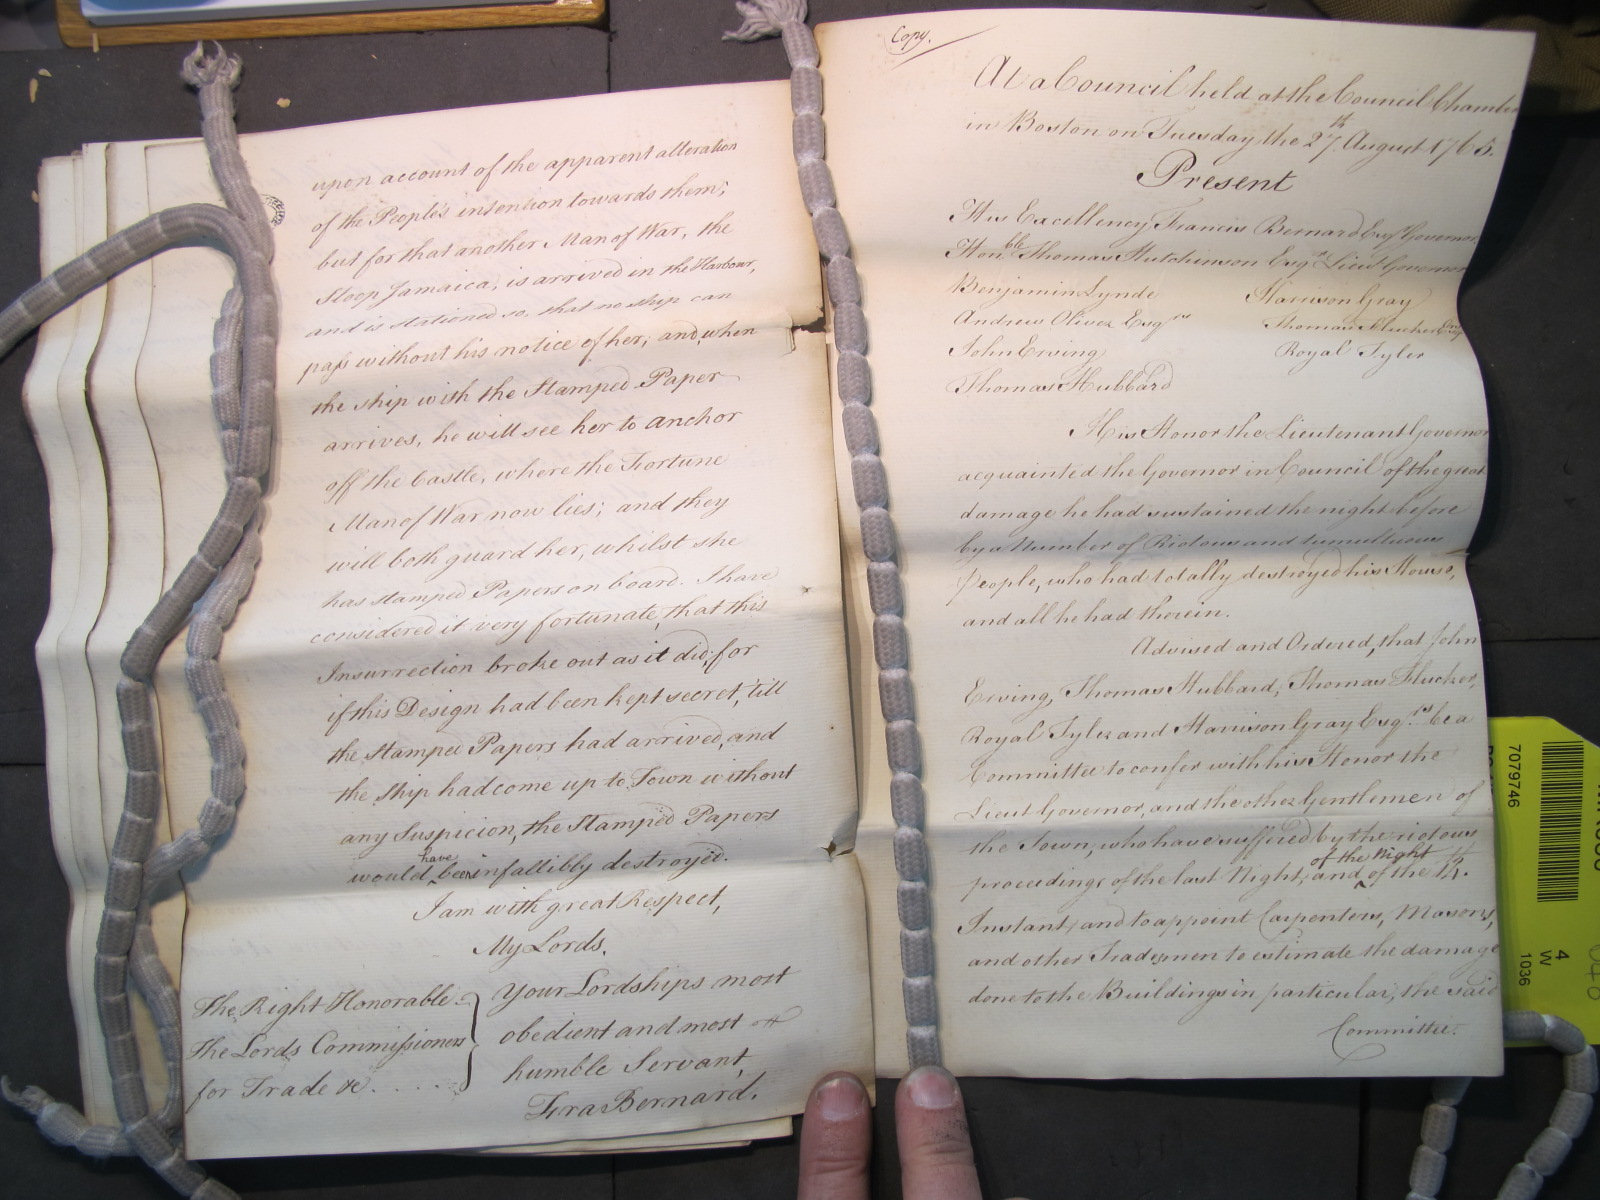 upon account of the apparent alteration
of the People's intention towards them;
but for that another Man of War, the
Sloop Jamaica, is arrived in the Harbour,
and is stationed so, that no ship can
pass without his notice of her; and, when
the ship with the Stamped Paper
arrives, he will see her to anchor
off the Castle, where the Fortune
Man of War now lies; and they
will both guard her, whilst she
has stamped Papers on board. I have
considered it very fortunate, that this
Insurrection broke out as it did; for
if this Design had been kept secret, 'till
the Stamped Papers had arrived, and
the ship had come up to Town without
any Suspicion, the Stamped Papers
have
would been infallibly destroyed.
I am with great Respect,
My Lords,
Your Lordships most
obedient and most
humble Servant,
Fra Bernard.
The Right Honorable
the Lords Commissioners
for Trade &c. . . . .
Copy.
At a Council held at the Council Chamber
in Boston on Tuesday the 27th August 1765.
Present
His Excellency Francis Bernard Esqr Governor
Honble Thomas Hutchinson Esqr Lieut Governor
Benjamin Lynde Harrison Gray
Andrew Oliver Esqrs Thomas Flucker Esqrs
John Erving Royal Tyler
Thomas Hubbard
His Honor the Lieutenant Governor
acquainted the Governor in Council of the great
damage he had sustained the night before
by a Number of Riotous and tumultuous
People, who had totally destroyed his House,
and all he had therein.
Advised and Ordered, that John
Erving, Thomas Hubbard, Thomas Flucker,
Royal Tyler and Harrison Gray Esqrs be a
Committee to confer with his Honor the
Lieut Governor, and the other Gentlemen of
the Town, who have suffered by the riotous
of the Night
proceedings of the last Night, and of the
Instant, and to appoint Carpenters, Masons,
and other Tradesmen to estimate the damage
done to the Buildings in particular, the said
Committee.
7079746
4
W
1036